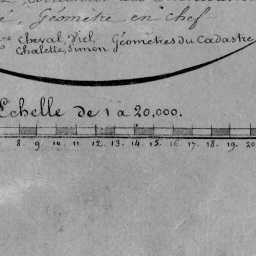 Géometre en chef
Cheval, Viel, Géometres du Cadastre
Chalette, Simon
Echelle de 1 à 20,000.
8. 9. 10. 11. 12. 13. 14. 15. 16. 17. 18. 19. 20